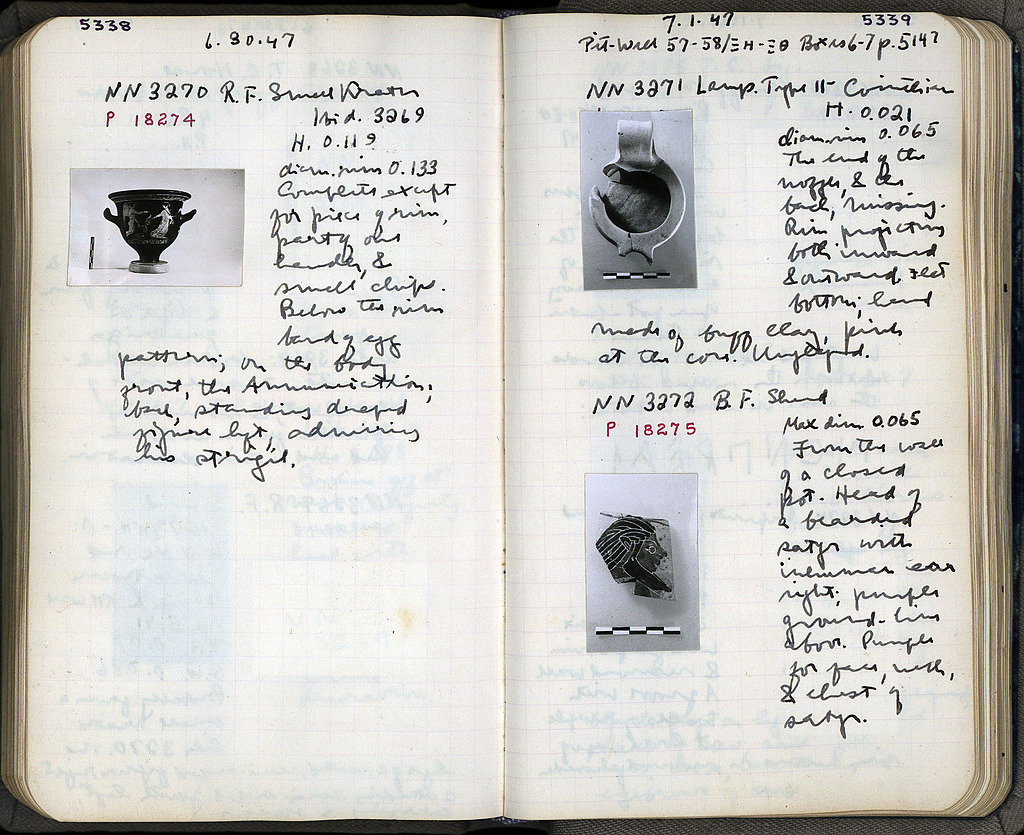 5338
6.30.47
NN 3270 R.F. Small Krater
P 18274
Ibid. 3269
H. 0.119
diam. rim 0.133
Complete except
for piece of rim,
part of one
handle, &
small chips.
Below the rim
band of egg
pattern; on the body
front, the Annunciation;
back, standing draped
figure left, admiring
his strigil.
5339
7.1.47
Pit-Well 57-58/ΞΗ-ΞΘ Boxes 6-7 p. 5147
NN 3271 Lamp. Type II - Corinthian
H. 0.021
diam. rim 0.065
The end of the
nozzle, & the
back, missing.
Rim projecting
both inward
& outward, flat
bottom; hand
made of buff clay, pink
at the core. Unglazed.
NN 3272 B.F. Sherd
P 18275
Max dim. 0.065
From the wall
of a closed
pot. Head of
a bearded
satyr with
inhuman ear
right; purple
ground-line
above. Purple
for face, neck,
& chest of
satyr.